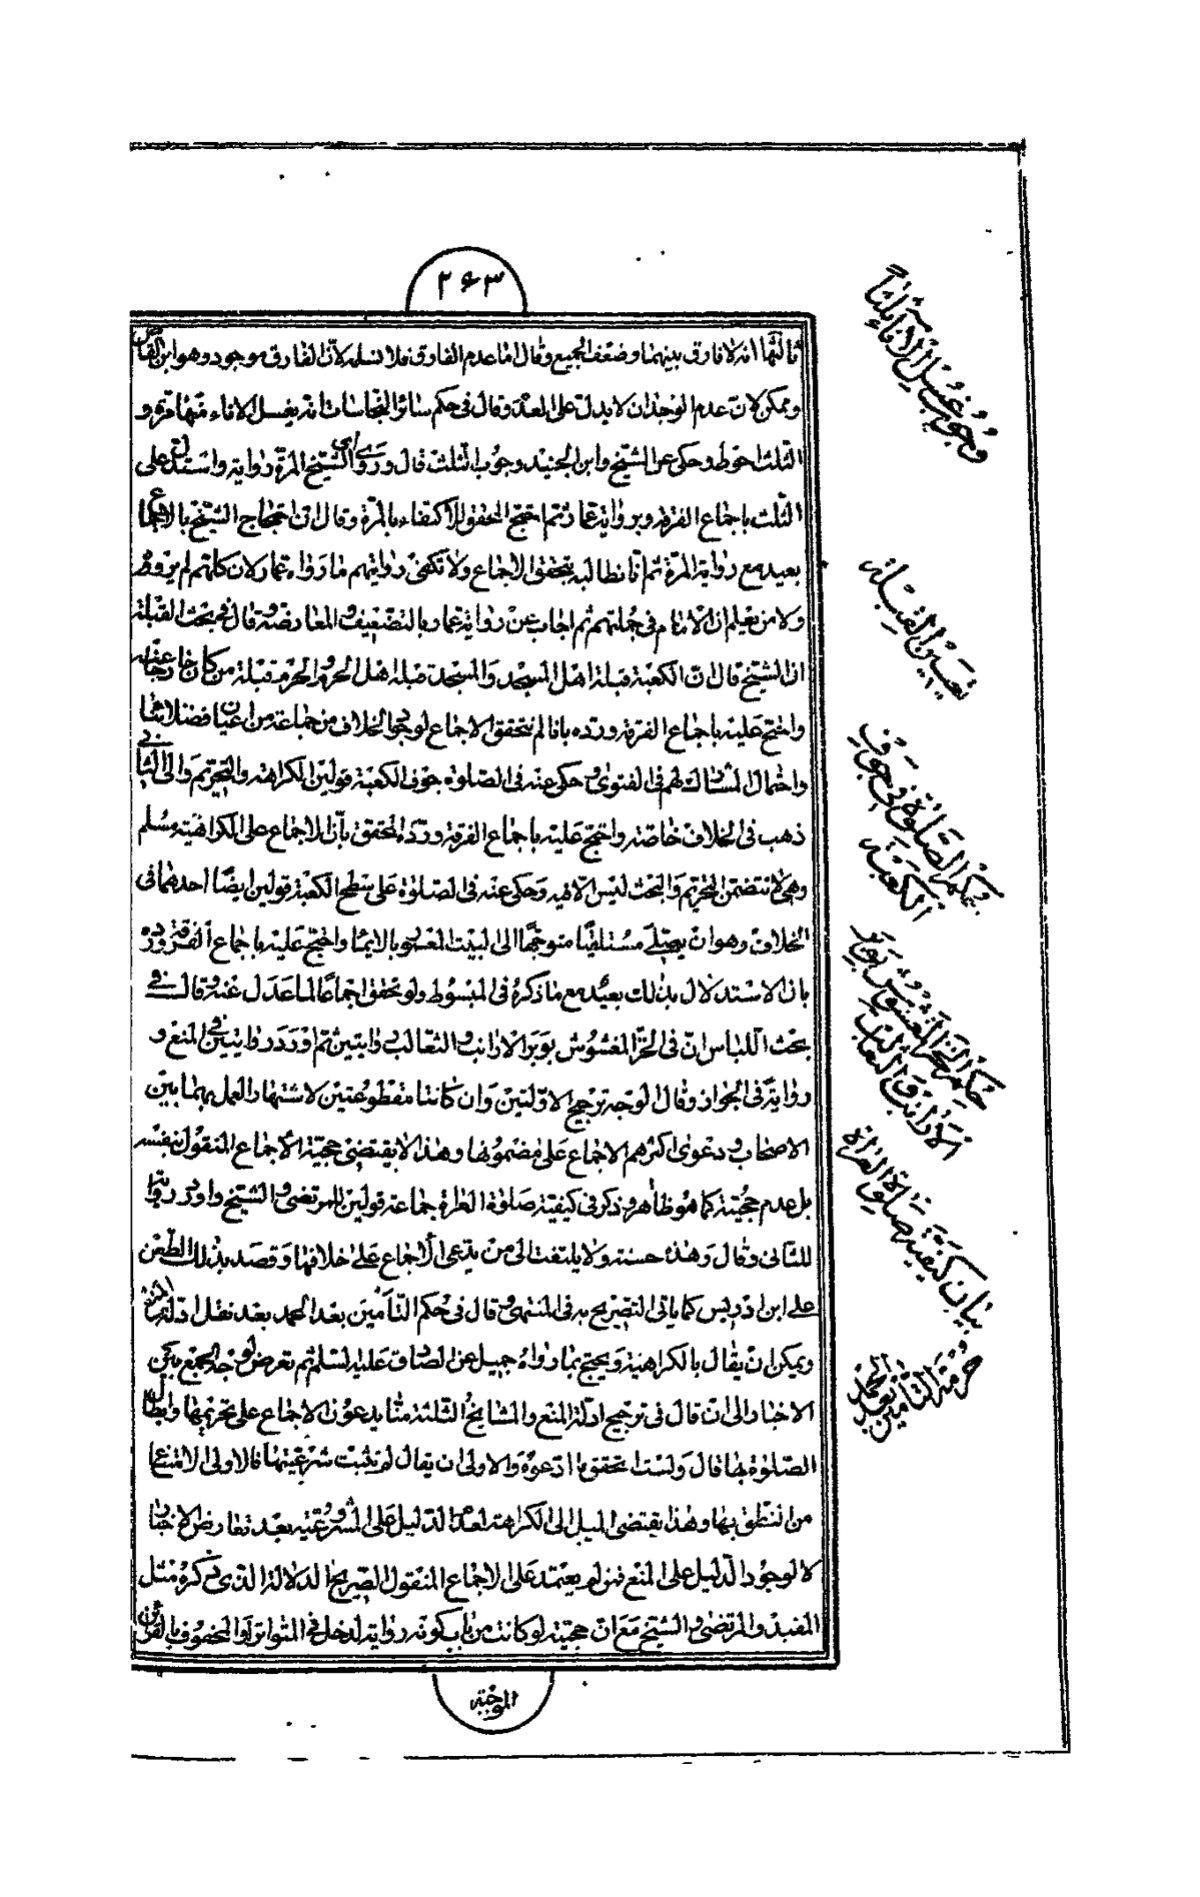 ٢۶٣
ثالثها انه لا فارق بينهما وضعف الجميع وقال اما عدم الفارق فلا نسلمه لان الفارق موجود وهو ابن
ويمكن لان عدم الوجدان لا يدل على العدم وقال في حكم سائر النجاسات انه يغسل الاناء منها مرة و
الثلث احوط وحكى عن الشيخ وابن الجنيد وجوب الثلث قال وروى الشيخ المرة رواية واستدل على
الثلث باجماع الفرقة وبرواية عمار ثم احتج المحقق للاكتفاء بالمرة وقال ان احتجاج الشيخ بالاجماع
بعيد مع رواية المرة ثم انا نطالبه بتحقق الاجماع ولا تكفى روايتهم ما رواه عمار لان كلهم لم يرووه
ولا من يعلم ان الامام في جملتهم ثم اجاب عن رواية عمار بالتضعيف والمعارضة وقال في بحث القبلة
ان الشيخ قال ان الكعبة قبلة اهل المسجد والمسجد قبلة اهل الحرم والحرم قبلة من كان خارجا عنه
واحتج عليه باجماع الفرقة ورده بانا لم نتحقق الاجماع لوجود الخلاف من جماعة من اعيان فضلائنا
واحتمال المشارك لهم في الفتوى وحكى عنه في الصلوة جوف الكعبة قولين الكراهة والتحريم والى الثاني
ذهب في الخلاف خاصة واحتج عليه باجماع الفرقة ورده المحقق بان الاجماع على الكراهية مسلم
وهى لا تتضمن التحريم والبحث ليس الا فيه وحكى عنه في الصلوة على سطح الكعبة قولين ايضا احدهما في
الخلاف وهو ان يصلى مستلقيا متوجها الى البيت المعمور بالايماء واحتج عليه باجماع الفرقة ورده
بان الاستدلال بذلك بعيد مع ما ذكره في المبسوط ولو تحقق اجماعا لما عدل عنه وقال في
بحث اللباس ان في الخز المغشوش بوبر الارانب والثعالب روايتين ثم اورد روايتين في المنع و
رواية في الجواز وقال الوجه ترجيح الاولتين وان كانتا مقطوعتين لاشتهار العمل بهما بين
الاصحاب ودعوى اكثرهم الاجماع على مضمونها وهذا لا يقتضى حجية الاجماع المنقول بنفسه
بل عدم حجيته كما هو ظاهر وذكر في كيفية صلوة العراة جماعة قولين للمرتضى والشيخ واورد رواية
للثانى وقال وهذه حسنة ولا يلتفت الى من يدعى الاجماع على خلافها وقصد بذلك الطعن
على ابن ادريس كما ياتى التصريح به في المنتهى وقال في حكم التأمين بعد الحمد بعد نقل ادلة المنع
ويمكن ان يقال بالكراهية ويحتج بما رواه جميل عن الصادق عليه السلم ثم تعرض لوجه الجمع بين
الاخبار الى ان قال في ترجيح ادلة المنع والمشايخ الثلثة منا يدعون الاجماع على تحريمها وابطال
الصلوة بها قال ولست اتحقق ما ادعوه والاولى ان يقال لم يثبت شرعيتها فالاولى الامتناع
من النطق بها وهذا يقتضى الميل الى الكراهة لعدم الدليل على المشروعية بعد تعارض الاخبار
لا لوجود الدليل على المنع فمن لم يعتمد على الاجماع المنقول الصريح الدلالة الذى ذكره مثل
المفيد والمرتضى والشيخ مع ان حجيته لو كانت من باب كونه رواية لدخل في المتواتر او المحفوف بالقرائن
الموجبة
وجوب غسل الاناء ثلثاً
تعيين القبلة
حكم الصلوة في جوف
الكعبة
حكم الخز المغشوش بوبر
الارانب والثعالب
بيان كيفية صلوة العراة
حرمة التأمين